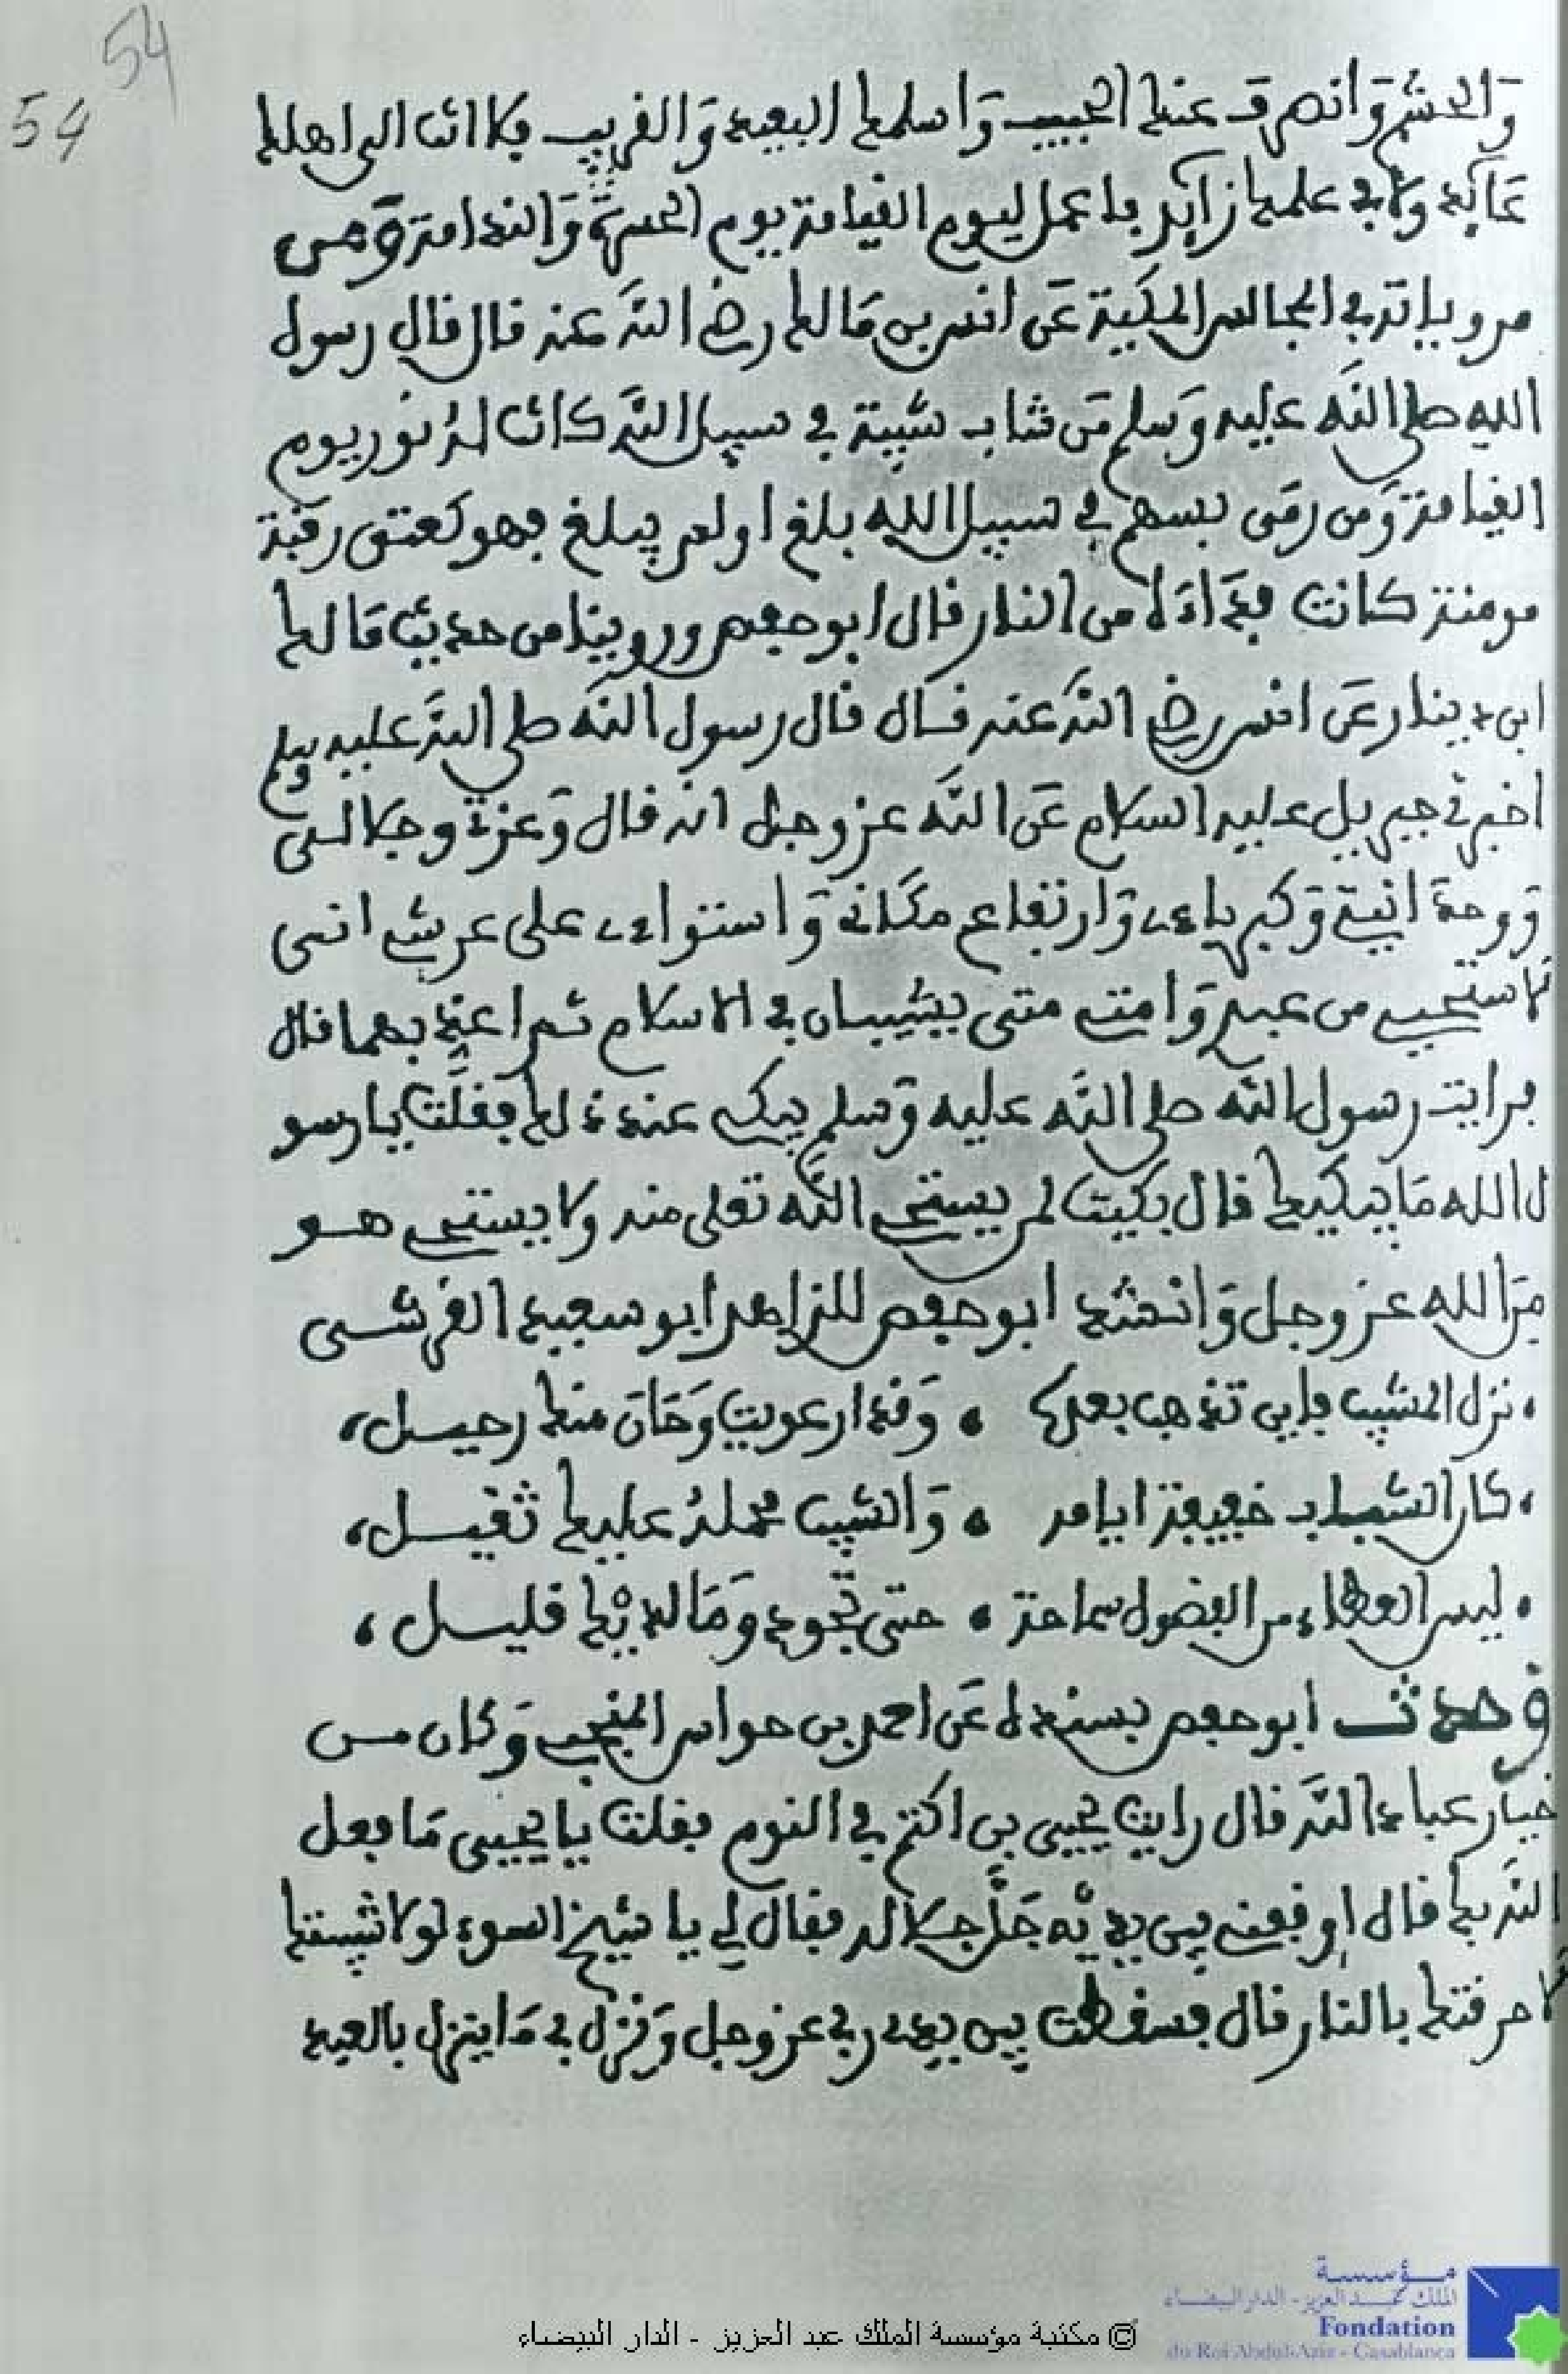 54
54
والحشم وانصرف عنك الحبيب واسلمك البعيد والقريب فلا انت الى اهلك
عائد ولا في عملك زائد فاعمل ليوم القيامة يوم الحسرة والندامة ومن
مروياته في المجالس المكية عن انس بن مالك رضي الله عنه قال قال رسول
الله صلى الله عليه وسلم من شاب شيبة في سبيل الله كانت له نور يوم
القيامة ومن رمى بسهم في سبيل الله بلغ او لم يبلغ فهو كعتق رقبة
مومنة كانت فداءه من النار قال ابو حفص وروينا من حديث مالك
ابن دينار عن انس رضي الله عنه قال قال رسول الله صلى الله عليه وسلم
اخبرني جبريل عليه السلام عن الله عز وجل انه قال وعزتي وجلالي
ووحدانيتي وكبرياءي وارتفاع مكاني واستواءي على عرشي اني
لاستحيي من عبدي وامتي متى يشيبان في الاسلام ثم اعذبهما قال
فرايت رسول الله صلى الله عليه وسلم يبكي عند ذلك فقلت يا رسو
ل الله ما يبكيك قال بكيت لمن يستحي الله تعلى منه ولا يستحي هو
من الله عز وجل وانشد ابو حفص للزاهد ابو سعيد القرشي
، نزل المشيب فاين تذهب بعده ، وقد ارعويت وحان منك رحيل ،
، كان الشباب خفيفة ايامه ، والشيب محمله عليك ثقيل ،
، ليس العطاء من الفضول سماحة ، حتى تجود وما لديك قليل ،
وحدث ابو حفص بسنده عن احمد بن حواس المنجب وكان من
خيار عباد الله قال رايت يحيى بن اكتم في النوم فقلت يا يحيى ما فعل
الله بك قال اوقفني بين يديه جل جلاله فقال لي يا شيخ السوء لولا شيبتك
لاحرقتك بالنار قال فسقطت بين يدي ربي عز وجل ونزل بي ما ينزل بالعبد
© مكتبة مؤسسة الملك عبد العزيز - الدار البيضاء
مؤسسة
الملك عبد العزيز - الدار البيضاء
Fondation
du Roi Abdul-Aziz - Casablanca